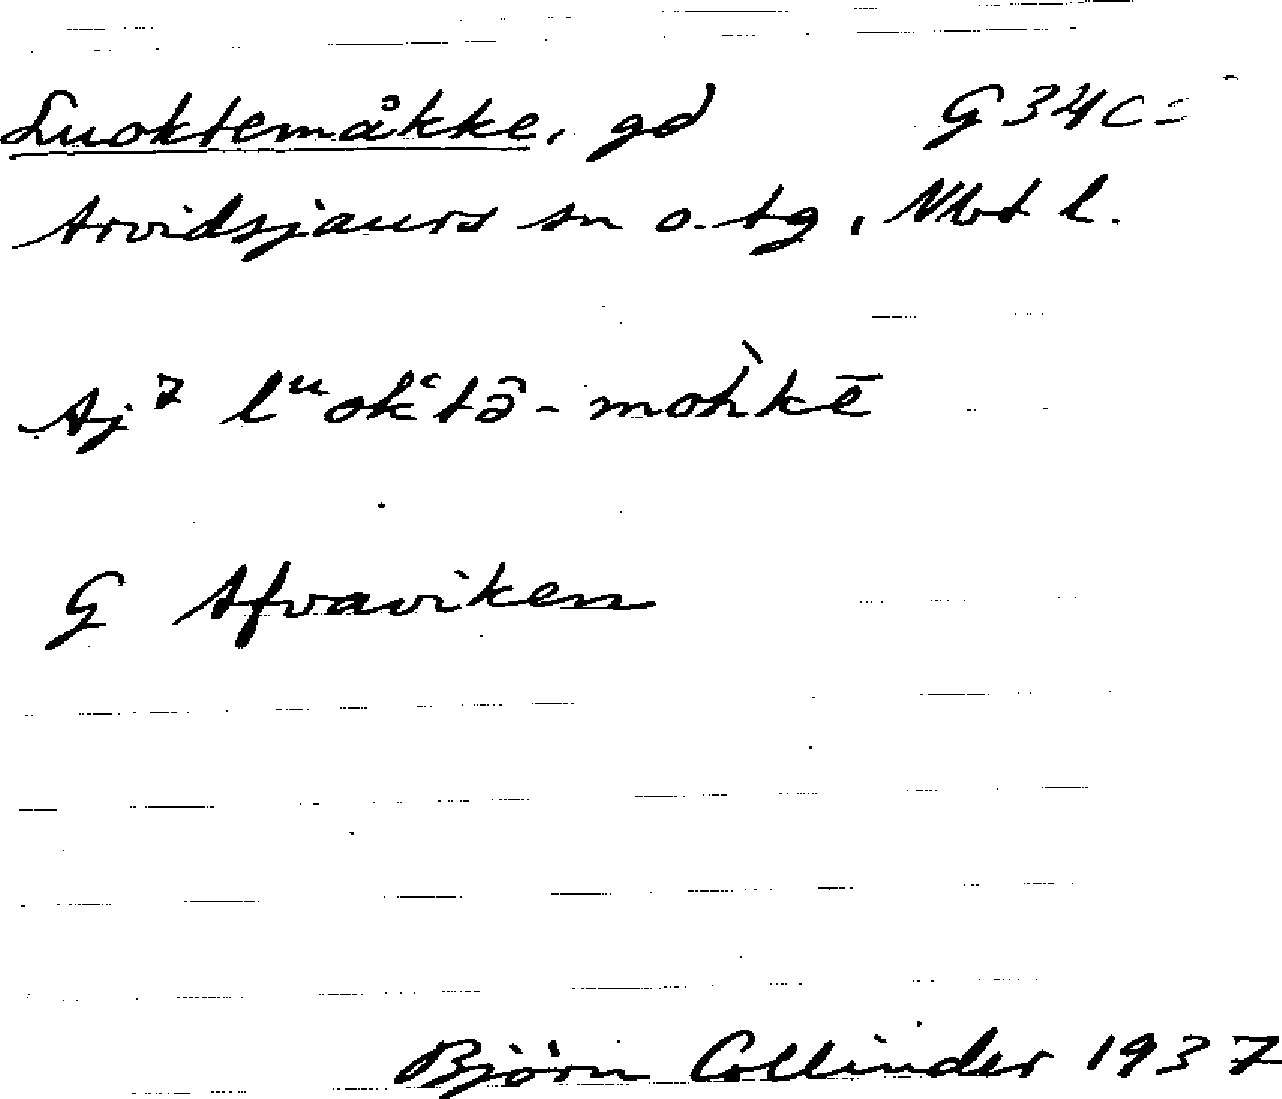 Luoktemåkke, gd G34c
Arvidsjaurs sn o. tg, Nbt l.
Aj 7 lᵘok‘tə̑-mòh̀kē
G Afvaviken
Björn Collinder 1937